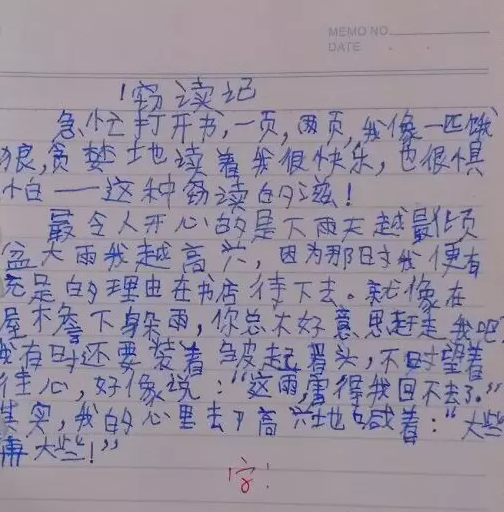 MEMO NO.
DATE
窃读记
急忙打开书,一页,两页,我像一匹饿
狼,贪婪地读着我很快乐,也很惧
怕——这种窃读的滋!
最令人开心的是下雨天越最倾
盆大雨我越高兴,因为那时我便有
充足的理由在书店待下去。就像在
屋檐下躲雨,你总不好意思赶走我吧
我有时还要装着皱起眉头,不时望着
街心,好像说:“这雨,害得我回不去了。”
其实,我的心里去了高兴地喊着:“大些
再大些!”
字!